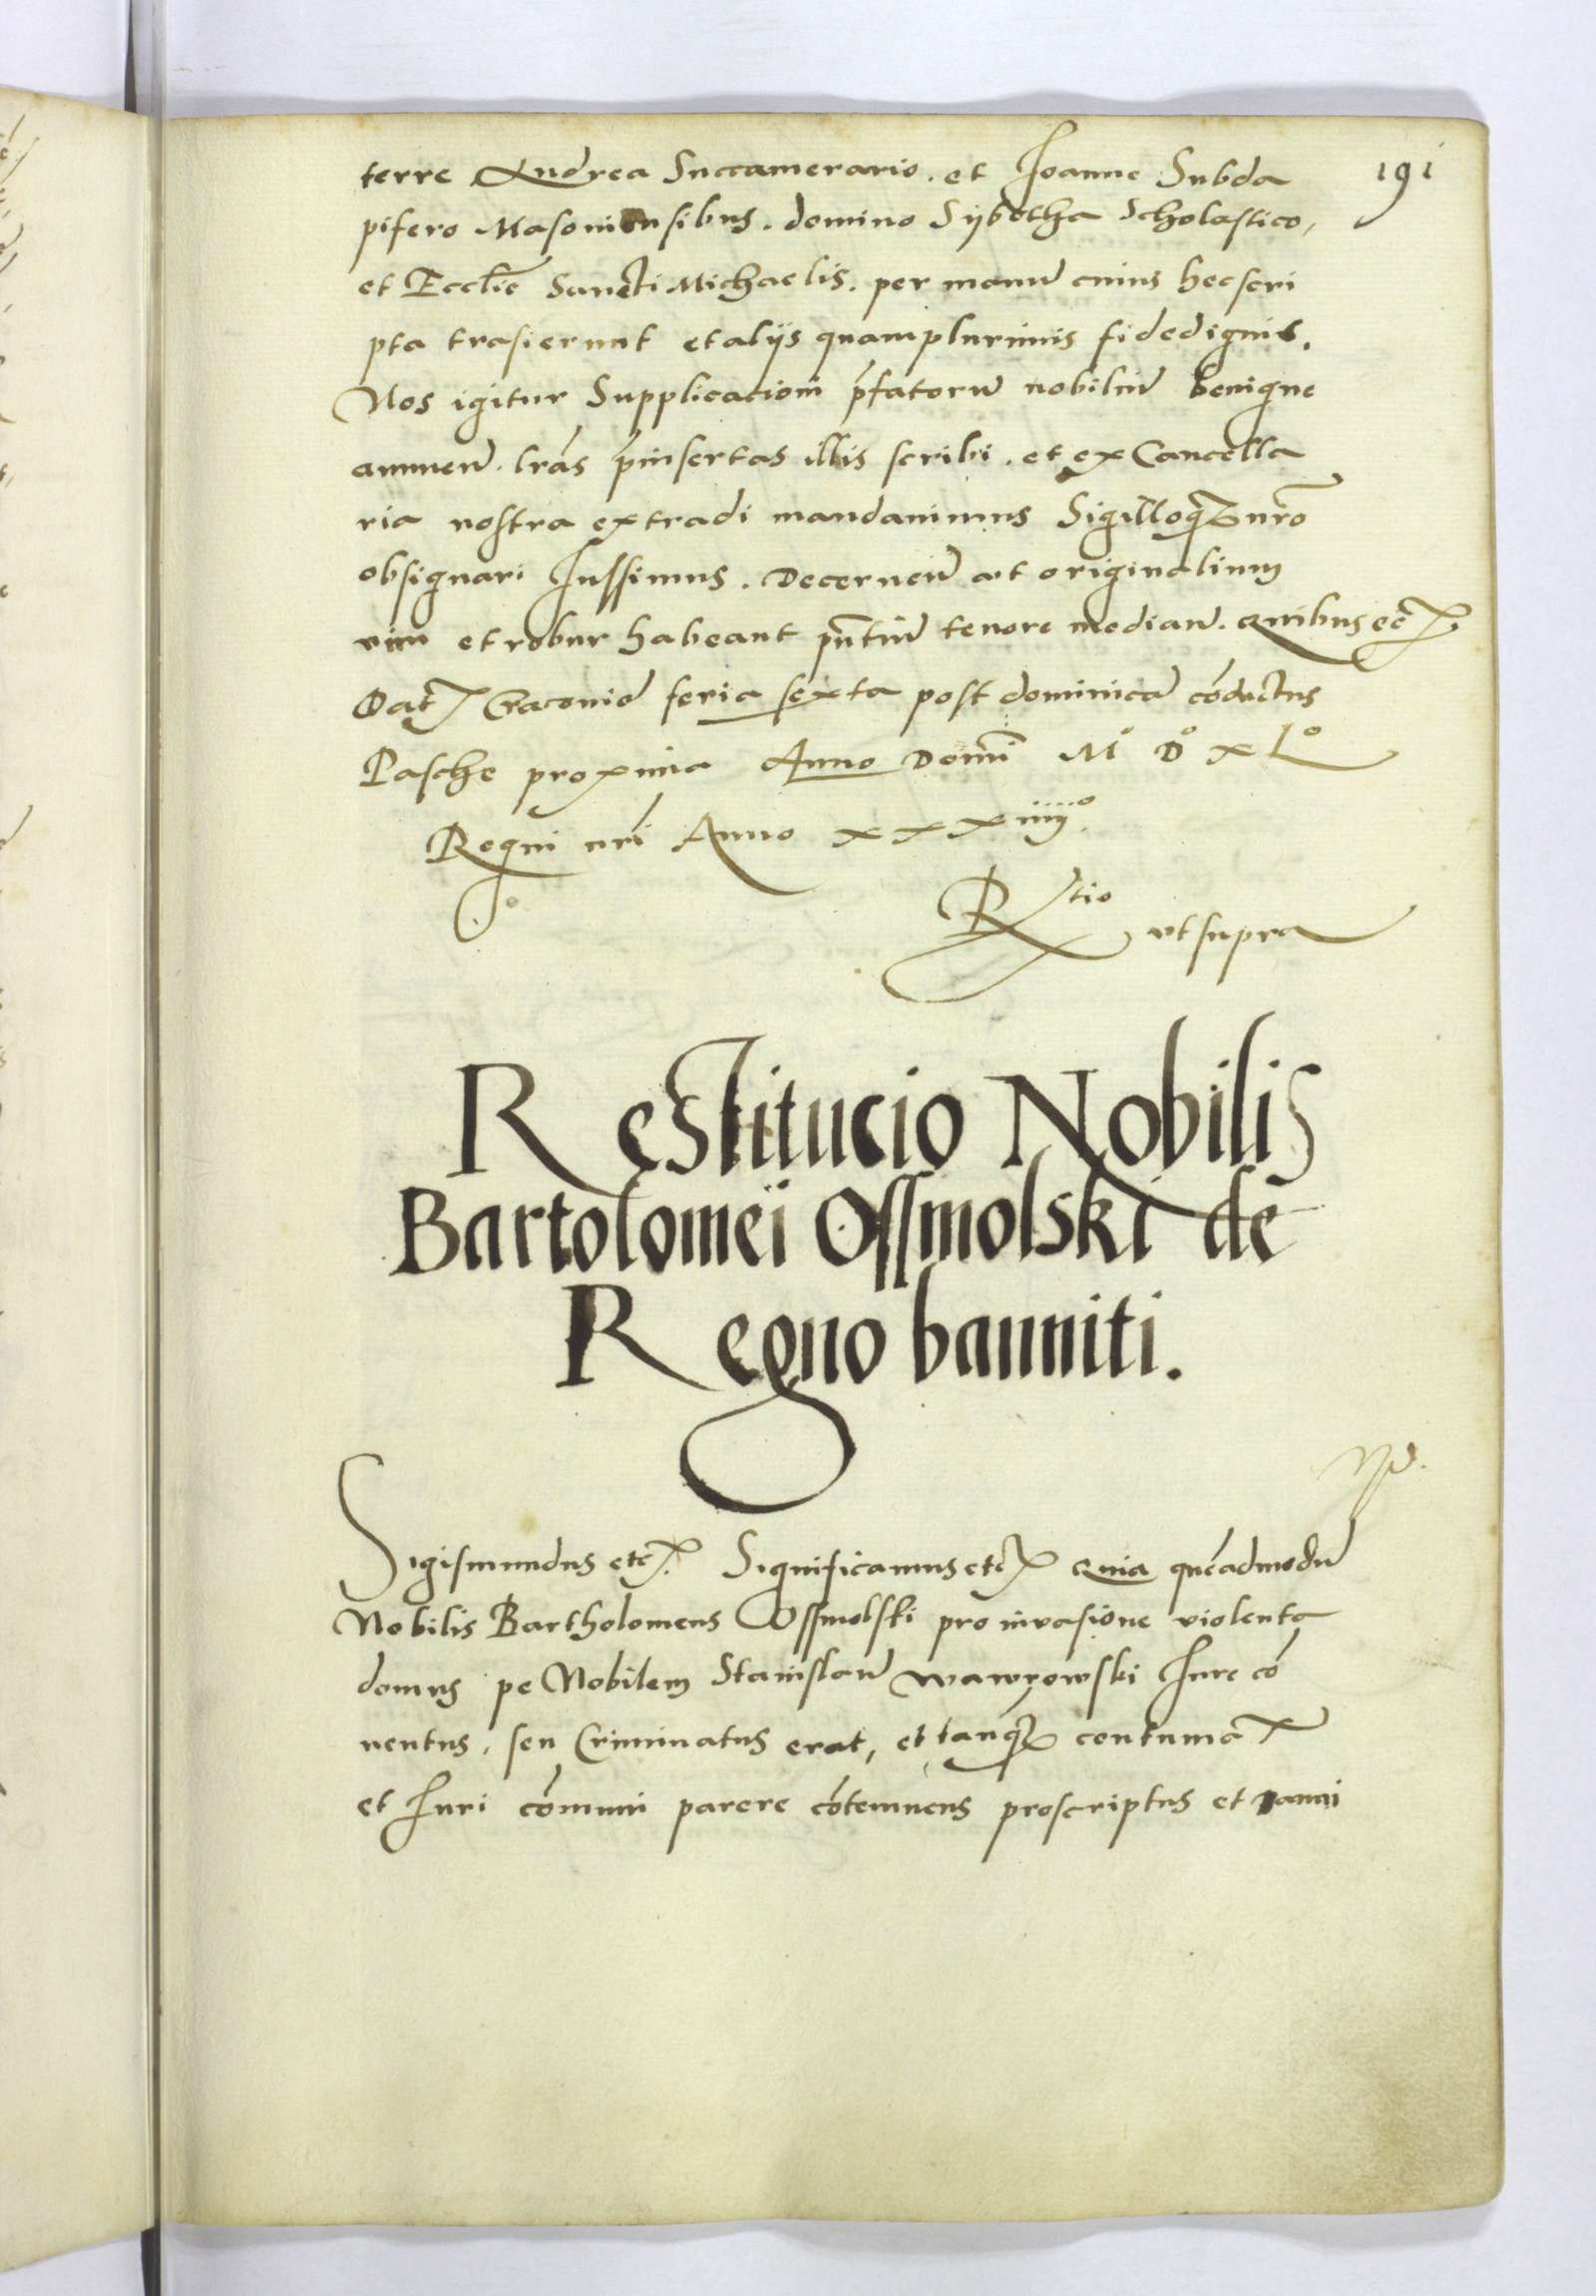 191
terre Andrea Succamerario. et Ioanne Subda
pifero Masouiensibus. domino Sÿbotha Scholastico,
et Ecclīe Sancti Michaelis. per manū cuius hec scri
pta trasierunt et alÿs quamplurimis fidedignis.
Nos igitur Supplicacioni p̄fatorū nobiliū benigne
annuen̄. lrās p̄insertas illis scribi. et ex Cancella
ria nostra extradi mandauimus Sigilloqȝ nrō
obsignari Iussimus. Decernen̄ vt originalium
vim et robur habeant pn̄tiū tenore median̄. Quibus etc̄
Dat Cracouie feria sexta post dominicā cōductus
Pasche proxima Anno Domī Mº Dº xLº
Regni nrī Anno xxxiiijº
Rtio vt supra
Restitucio Nobilis
Bartolomei Ossmolski de
Regno banniti.
Sigismundus etc̄. Significamus etc̄ Quia quēadmodū
Nobilis Bartholomeus Ossmolski pro invasione violenta
domus pe Nobilem Stanislaū Wawrowski Iure cō
uentus, seu Criminatus erat, et tanqȝ contumax
et Iuri cōmuni parere cōtemnens proscriptus et banni